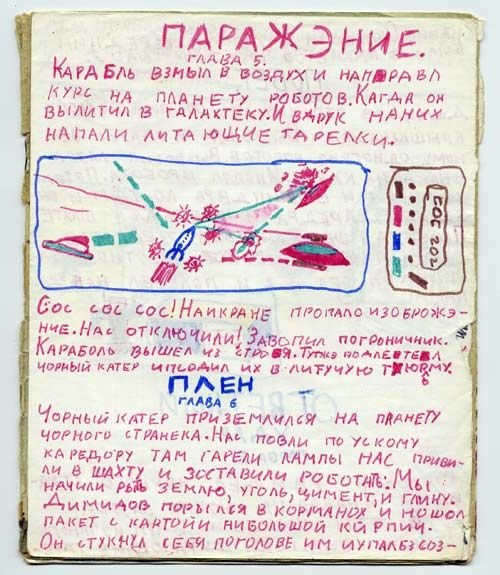 ПАРАЖЭНИЕ.
ГЛАВА 5.
КАРАБЛЬ ВЗМЫЛ В ВОЗДУХ И НАПОРАВЛ
КУРС НА ПЛАНЕТУ РОБОТОВ. КАГДА ОН
ВЫЛИТИЛ В ГАЛАХТЕКУ. И ВДРУК НАНИХ
НАПАЛИ ЛИТАЮЩИЕ ТАРЕЛКИ.
СОС СОС СОС! НАИКРАНЕ ПРОПАЛО ИЗОБРОЖЭ-
НИЕ. НАС ОТКЛЮЧИЛИ! ЗАВОПИЛ ПОГРОНИЧНИК.
КАРАБОЛЬ ВЫШЕЛ ИЗ СТРОЯ. ПОДЛЕТЕЛ
ЧОРНЫЙ КАТЕР ИПСОДИЛ ИХ В ЛИТУЧУЮ ТЮРМУ.
ПЛЕН
ГЛАВА 6
ЧОРНЫЙ КАТЕР ПРИЗЕМЛИЛСЯ НА ПЛАНЕТУ
ЧОРНОГО СТРАНЕКА. НАС ПОВЛИ ПО УСКОМУ
КАРЕДОРУ ТАМ ГАРЕЛИ ЛАМПЫ НАС ПРИВИ-
ЛИ В ШАХТУ И ЗОСТАВИЛИ РОБОТАТЬ. МЫ
НАЧИЛИ РЫТЬ ЗЕМЛЮ, УГОЛЬ, ЦИМЕНТ, И ГЛИНУ.
ДИМИДОВ ПОРЫЛСЯ В КОРМАНОХ И НОШОЛ
ПАКЕТ С КАРТОЙ И НИБОЛЬШОЙ КИРПИЧ.
ОН СТУКНУЛ СЕБЯ ПОГОЛОВЕ ИМ ИУПАЛБЗСОЗ-